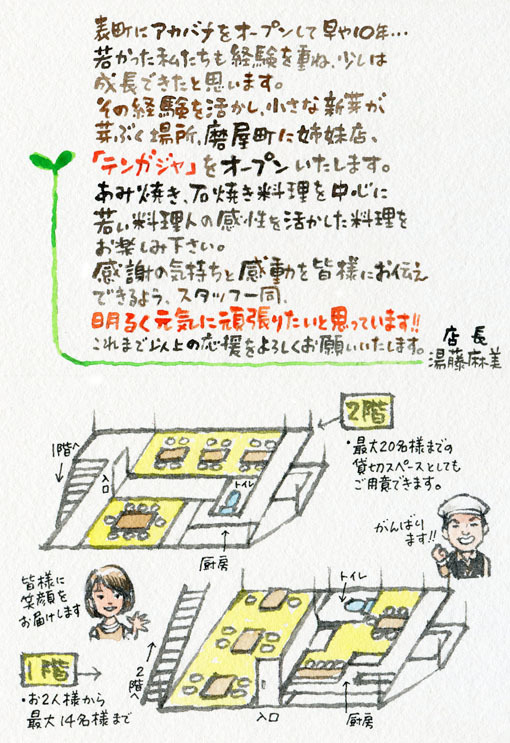 表町にアカバナをオープンして早や10年…
若かった私たちも経験を重ね、少しは
成長できたと思います。
その経験を活かし、小さな新芽が
芽ぶく場所、磨屋町に姉妹店、
「テンガジャ」をオープンいたします。
あみ焼き、石焼き料理を中心に
若い料理人の感性を活かした料理を
お楽しみ下さい。
感謝の気持ちと感動を皆様にお伝え
できるよう、スタッフ一同、
明るく元気に頑張りたいと思っています!!
これまで以上の応援をよろしくお願いいたします。
店長
湯藤麻美
2階
・最大20名様までの
貸切スペースとしても
ご用意できます。
1階へ
入口
トイレ
厨房
がんばり
ます!!
皆様に
笑顔を
お届けします
1階
・お2人様から
最大14名様まで
2階へ
トイレ
入口
厨房